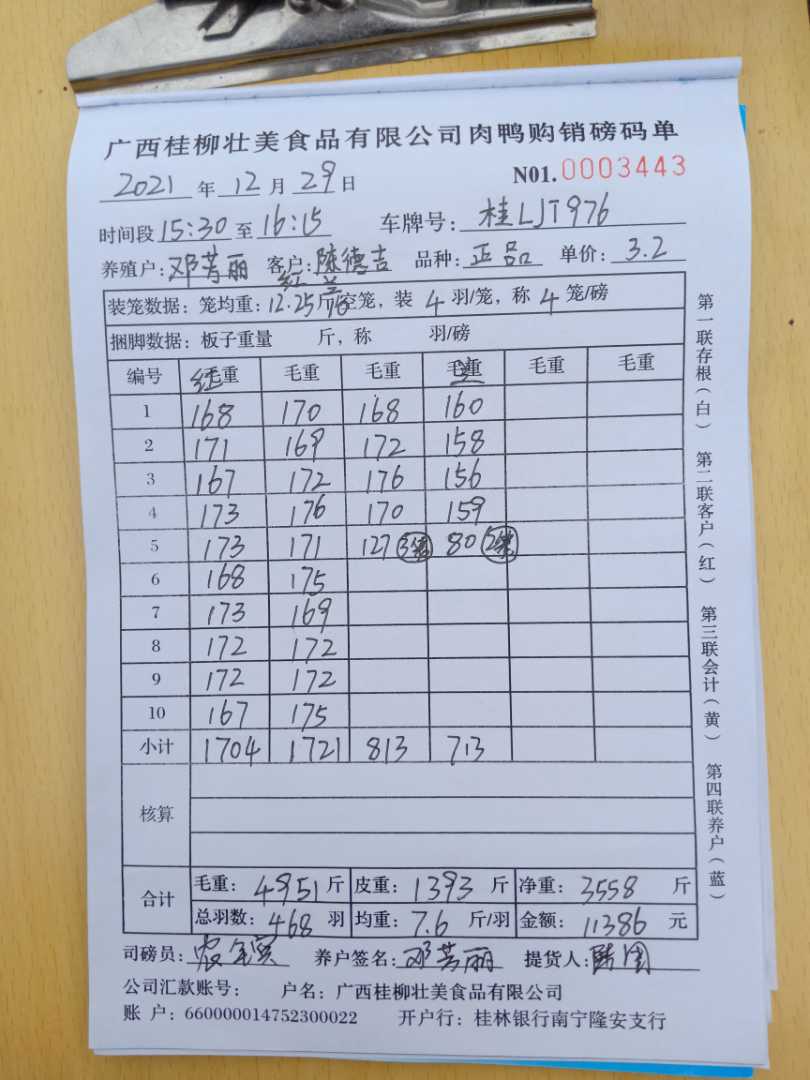 广西桂柳壮美食品有限公司肉鸭购销磅码单
2021 年 12 月 29 日 N01.0003443
时间段 15:30 至 16:15 车牌号: 桂LJT976
养殖户: 邓芳丽 客户: 陈德吉 品种: 正品 单价: 3.2
红 兰
装笼数据: 笼均重: 12.25斤/16空笼, 装 4 羽/笼, 称 4 笼/磅
捆脚数据: 板子重量 斤, 称 羽/磅
编号 红毛重 毛重 毛重 毛重 毛重 毛重
1 168 170 168 160
2 171 169 172 158
3 167 172 176 156
4 173 176 170 159
5 173 171 127 3笼 80 2笼
6 168 175
7 173 169
8 172 172
9 172 172
10 167 175
小计 1704 1721 813 713
核算
合计 毛重: 4951 斤 皮重: 1393 斤 净重: 3558 斤
总羽数: 468 羽 均重: 7.6 斤/羽 金额: 11386 元
司磅员: 养户签名: 邓芳丽 提货人:
公司汇款账号: 户名: 广西桂柳壮美食品有限公司
账 户: 660000014752300022 开户行: 桂林银行南宁隆安支行
第一联存根(白) 第二联客户(红) 第三联会计(黄) 第四联养户(蓝)